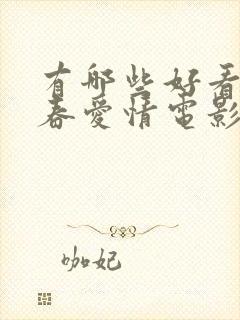 有哪些好看
春爱情电影
咖妃